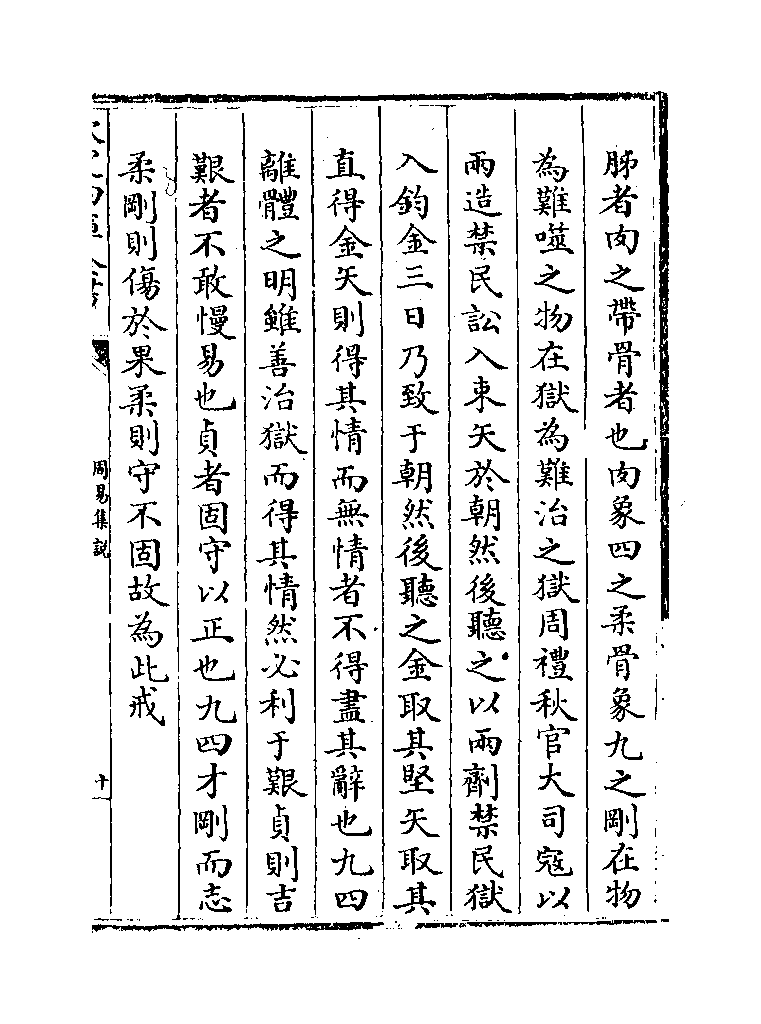 胏者肉之帶骨者也肉象四之柔骨象九之剛在物
為難噬之物在獄為難治之獄周禮秋官大司寇以
兩造禁民訟入束矢於朝然後聽之以兩劑禁民獄
入鈞金三日乃致于朝然後聽之金取其堅矢取其
直得金矢則得其情而無情者不得盡其辭也九四
離體之明雖善治獄而得其情然必利于艱貞則吉
艱者不敢慢易也貞者固守以正也九四才剛而志
柔剛則傷於果柔則守不固故為此戒
周易集說
十一